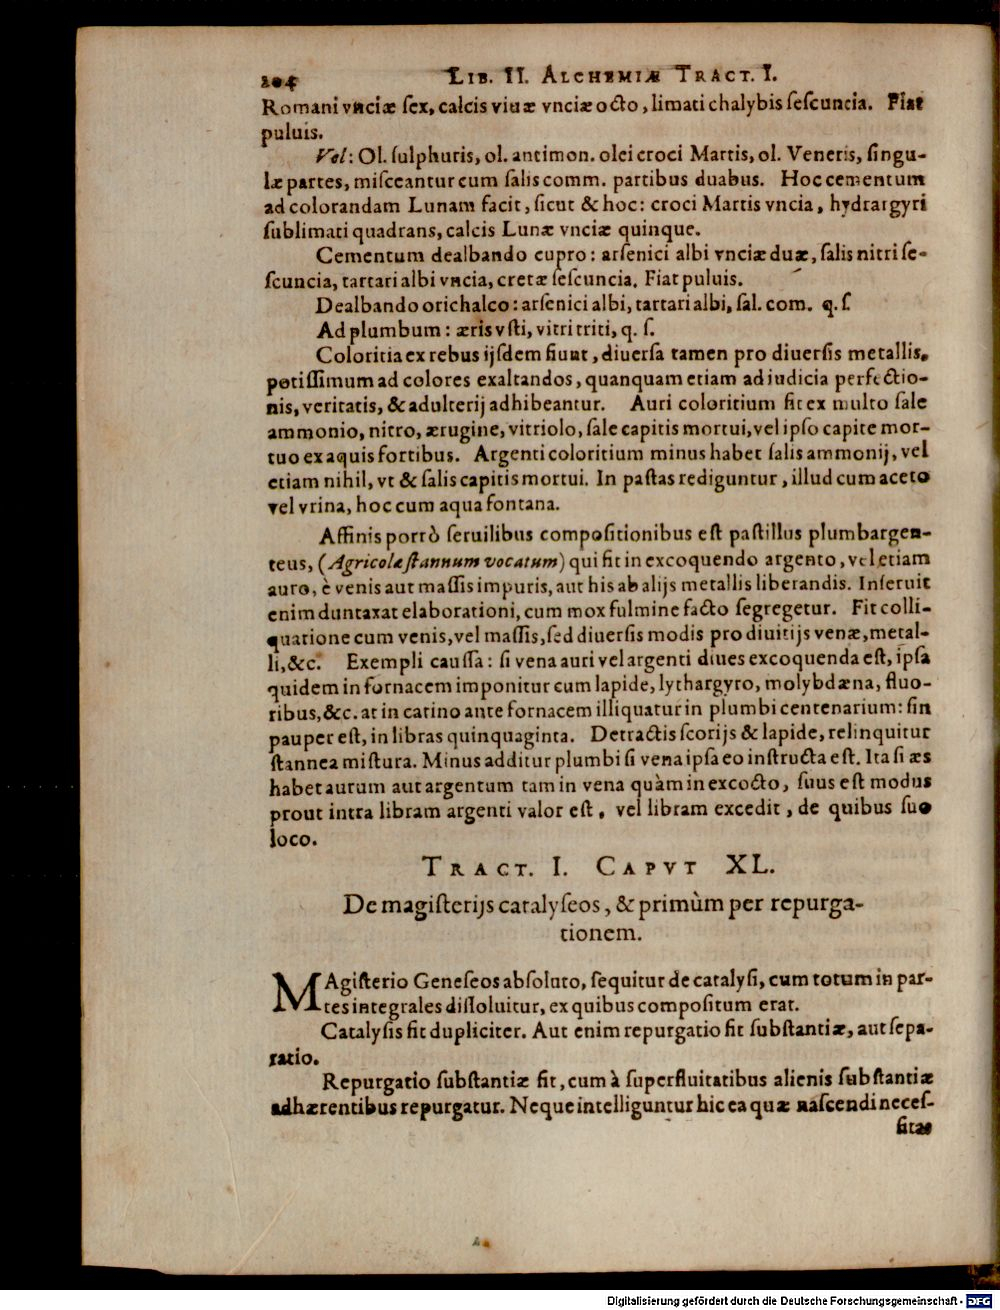 204 LIB. II. ALCHEMIÆ TRACT. I.
Romani vnciæ ſex, calcis viuæ vnciæ octo, limati chalybis ſeſcuncia. Fiat
puluis.
Vel: Ol. ſulphuris, ol. antimon. olei croci Martis, ol. Veneris, ſingu-
læ partes, miſceantur cum ſalis comm. partibus duabus. Hoc cementum
ad colorandam Lunam facit, ſicut & hoc: croci Martis vncia, hydrargyri
ſublimati quadrans, calcis Lunæ vnciæ quinque.
Cementum dealbando cupro: arſenici albi vnciæ duæ, ſalis nitri ſe-
ſcuncia, tartari albi vncia, cretæ ſeſcuncia. Fiat puluis.
Dealbando orichalco: arſenici albi, tartari albi, ſal. com. q. ſ.
Ad plumbum: æris vſti, vitri triti, q. ſ.
Coloritia ex rebus ijſdem fiunt, diuerſa tamen pro diuerſis metallis,
potiſſimum ad colores exaltandos, quanquam etiam ad iudicia perfectio-
nis, veritatis, & adulterij adhibeantur. Auri coloritium fit ex multo ſale
ammonio, nitro, ærugine, vitriolo, ſale capitis mortui, vel ipſo capite mor-
tuo ex aquis fortibus. Argenti coloritium minus habet ſalis ammonij, vel
etiam nihil, vt & ſalis capitis mortui. In paſtas rediguntur, illud cum aceto
vel vrina, hoc cum aqua fontana.
Affinis porrò ſeruilibus compoſitionibus eſt paſtillus plumbargen-
teus, (Agricolæ ſtannum vocatum) qui fit in excoquendo argento, vel etiam
auro, è venis aut maſſis impuris, aut his ab alijs metallis liberandis. Inſeruit
enim duntaxat elaborationi, cum mox fulmine facto ſegregetur. Fit colli-
quatione cum venis, vel maſſis, ſed diuerſis modis pro diuitijs venæ, metal-
li, &c. Exempli cauſſa: ſi vena auri vel argenti diues excoquenda eſt, ipſa
quidem in fornacem imponitur cum lapide, lythargyro, molybdæna, fluo-
ribus, &c. at in catino ante fornacem illiquatur in plumbi centenarium: ſin
pauper eſt, in libras quinquaginta. Detractis ſcorijs & lapide, relinquitur
ſtannea miſtura. Minus additur plumbi ſi vena ipſa eo inſtructa eſt. Ita ſi æs
habet aurum aut argentum tam in vena quàm in excocto, ſuus eſt modus
prout intra libram argenti valor eſt, vel libram excedit, de quibus ſuo
loco.
TRACT. I. CAPVT XL.
De magiſterijs catalyſeos, & primùm per repurga-
tionem.
MAgiſterio Geneſeos abſoluto, ſequitur de catalyſi, cum totum in par-
tes integrales diſſoluitur, ex quibus compoſitum erat.
Catalyſis fit dupliciter. Aut enim repurgatio fit ſubſtantiæ, aut ſepa-
ratio.
Repurgatio ſubſtantiæ fit, cum à ſuperfluitatibus alienis ſubſtantiæ
adhærentibus repurgatur. Neque intelliguntur hic ea quæ naſcendi neceſ-
ſitas
Digitalisierung gefördert durch die Deutsche Forschungsgemeinschaft - DFG